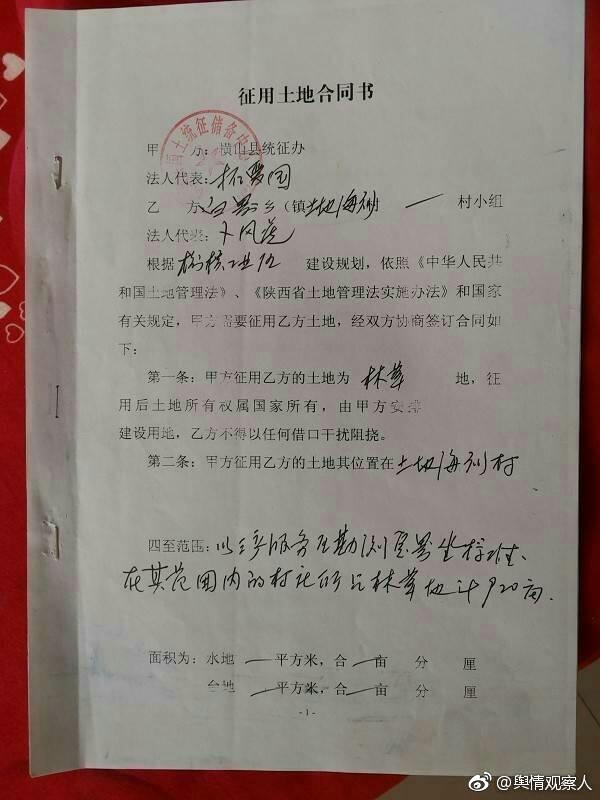 征用土地合同书
甲 方：横山县统征办
法人代表：
乙 方 白界乡（镇土地海则 一 村小组
法人代表：卜凤莲
根据榆横工业区 建设规划，依照《中华人民共
和国土地管理法》、《陕西省土地管理法实施办法》和国家
有关规定，甲方需要征用乙方土地，经双方协商签订合同如
下：
第一条：甲方征用乙方的土地为 林草 地，征
用后土地所有权属国家所有，由甲方安排
建设用地，乙方不得以任何借口干扰阻挠。
第二条：甲方征用乙方的土地其位置在土地海则村
四至范围：以 勘测定界坐标
在其范围内的村社所占林草地计920亩.
面积为：水地 一 平方米，合 一 亩 分 厘
台地 一 平方米，合 一 亩 分 厘
-1-
@舆情观察人